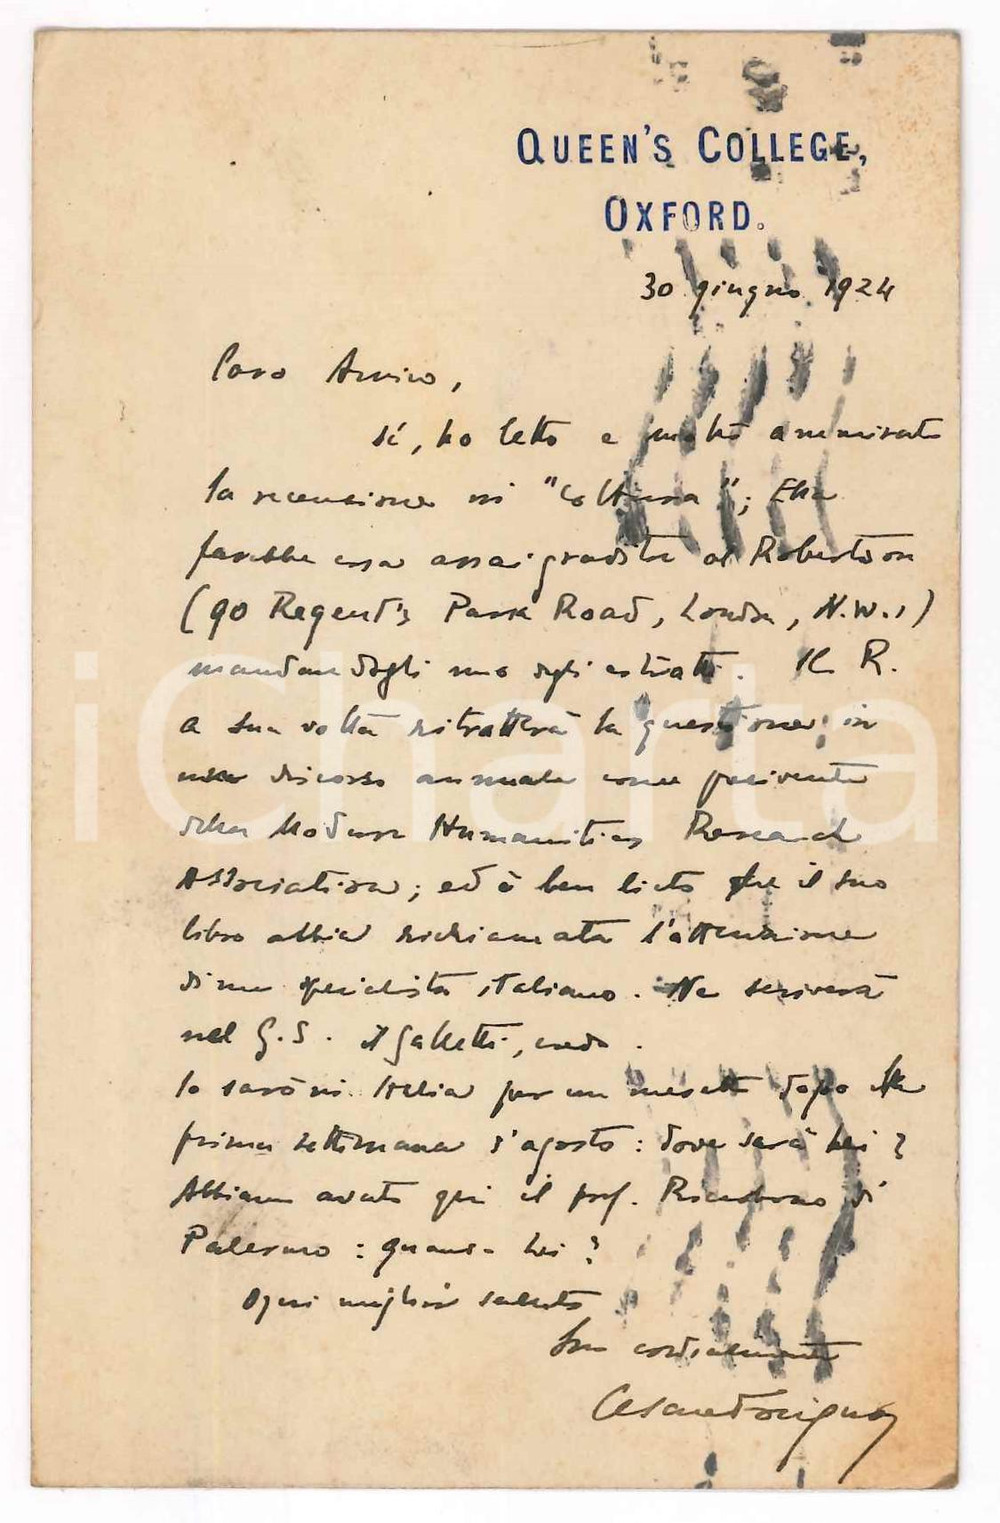 QUEEN'S COLLEGE,
OXFORD.
30 giugno 1924
Caro Amico,
Sì, ho letto e molto ammirato
la recensione in "Coltura"; Ella
farebbe cosa assai gradita al Robertson
(90 Regent's Park Road, London, N.W.1)
mandandogli uno degli estratti. Il R.
a sua volta ritratterà la questione in
un discorso annuale come presidente
della Modern Humanities Research
Association; ed è ben lieto che il suo
libro abbia richiamata l'attenzione
di uno specialista italiano. Ne scriverà
nel G.S. il Galletti, credo.
Io sarò in Italia per un mesetto dopo la
prima settimana d'agosto: dove sarà Lei?
Abbiamo avuto qui il prof. Riccobono di
Palermo: quando Lei?
Ogni miglior saluto
Suo cordialmente
Cesare Foligno
iCharta